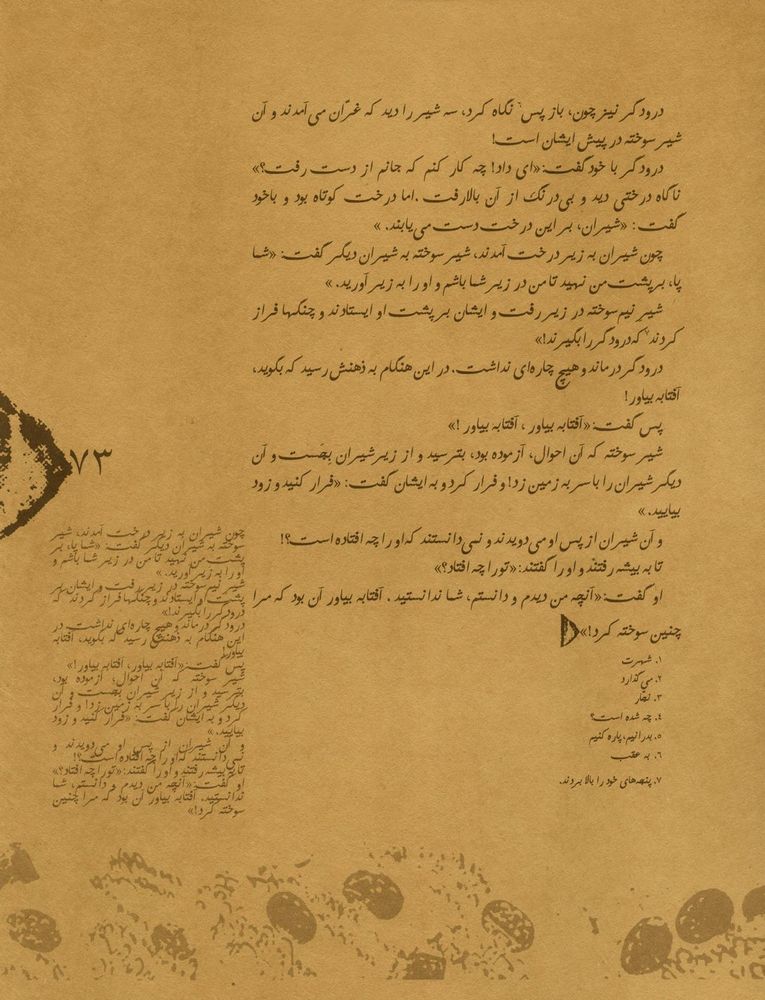 درودگر نیز چون، باز پس۶ نگاه کرد، سه شیر را دید که غرّان می‌آمدند و آن
شیر سوخته در پیش ایشان است!
درودگر با خود گفت: «ای داد! چه کار کنم که جانم از دست رفت؟»
ناگاه درختی دید و بی‌درنگ از آن بالا رفت. اما درخت کوتاه بود و باخود
گفت: «شیران، بر این درخت دست می‌یابند.»
چون شیران به زیر درخت آمدند، شیر سوخته به شیران دیگر گفت: «شما
پا، بر پشت من نهید تا من در زیر شما باشم و او را به زیر آورید.»
شیر نیم‌سوخته در زیر رفت و ایشان بر پشت او ایستادند و چنگها فراز
کردند۷ که درودگر را بگیرند!»
درودگر درماند و هیچ چاره‌ای نداشت. در این هنگام به ذهنش رسید که بگوید،
آفتابه بیاور!
پس گفت: «آفتابه بیاور، آفتابه بیاور!»
شیر سوخته که آن احوال، آزموده بود، بترسید و از زیر شیران بجست و آن
دیگر شیران را با سر به زمین زد! و فرار کرد و به ایشان گفت: «فرار کنید و زود
بیایید.»
و آن شیران از پس او می‌دویدند و نمی‌دانستند که او را چه افتاده است؟!
تا به بیشه رفتند و او را گفتند: «تو را چه افتاد؟»
او گفت: «آنچه من دیدم و دانستم، شما ندانستید. آفتابه بیاور آن بود که مرا
چنین سوخته کرد!»
۱. شهرت
۲. می‌گذارد
۳. نجّار
۴. چه شده است؟
۵. بدرانیم، پاره کنیم
۶. به عقب
۷. پنجه‌های خود را بالا بردند.
۷۳
چون شیران به زیر درخت آمدند، شیر
سوخته به شیران دیگر گفت: «شما پا، بر
پشت من نهید تا من در زیر شما باشم و
او را به زیر آورید.»
شیر نیم‌سوخته در زیر رفت و ایشان بر
پشت او ایستادند و چنگها فراز کردند که
درودگر را بگیرند!»
درودگر درماند و هیچ چاره‌ای نداشت. در
این هنگام به ذهنش رسید که بگوید، آفتابه
بیاور!
پس گفت: «آفتابه بیاور، آفتابه بیاور!»
شیر سوخته که آن احوال، آزموده بود،
بترسید و از زیر شیران بجست و آن
دیگر شیران را با سر به زمین زد! و فرار
کرد و به ایشان گفت: «فرار کنید و زود
بیایید.»
و آن شیران از پس او می‌دویدند و
نمی‌دانستند که او را چه افتاده است؟!
تا به بیشه رفتند و او را گفتند: «تو را چه افتاد؟»
او گفت: «آنچه من دیدم و دانستم، شما
ندانستید. آفتابه بیاور آن بود که مرا چنین
سوخته کرد!»